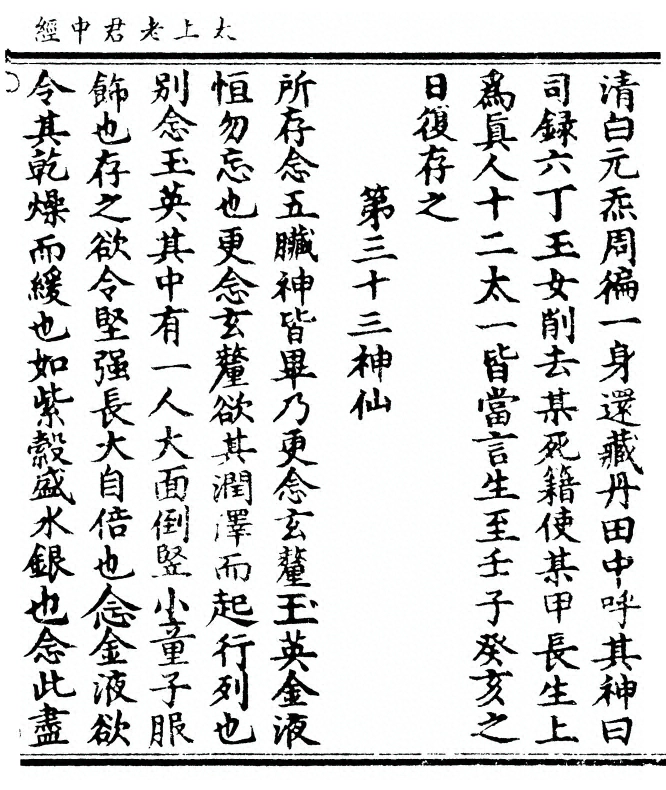 太上老君中經
清白元炁周徧一身還藏丹田中呼其神曰
司録六丁玉女削去某死籍使某甲長生上
爲眞人十二太一皆當言生至壬子癸亥之
日復存之
第三十三神仙
所存念五臟神皆畢乃更念玄釐玉英金液
恒勿忘也更念玄釐欲其潤澤而起行列也
别念玉英其中有一人大面倒竪小童子服
飾也存之欲令堅强長大自倍也念金液欲
令其乾燥而緩也如紫縠盛水銀也念此盡